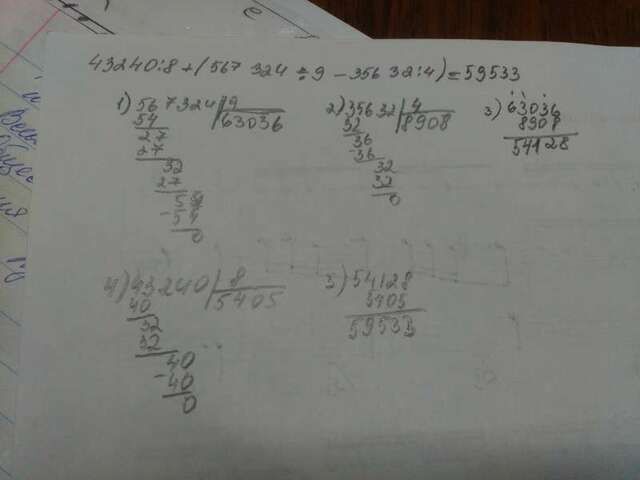 43240:8+(567 324:9-356 32:4)=59533
1) 567324|9
54 63036
27
27
32
27
54
-54
0
2) 35632|4
32 8908
36
-36
32
32
0
3) 63036
8908
54128
4) 43240|8
40 5405
32
32
40
-40
0
3) 54128
5405
59533